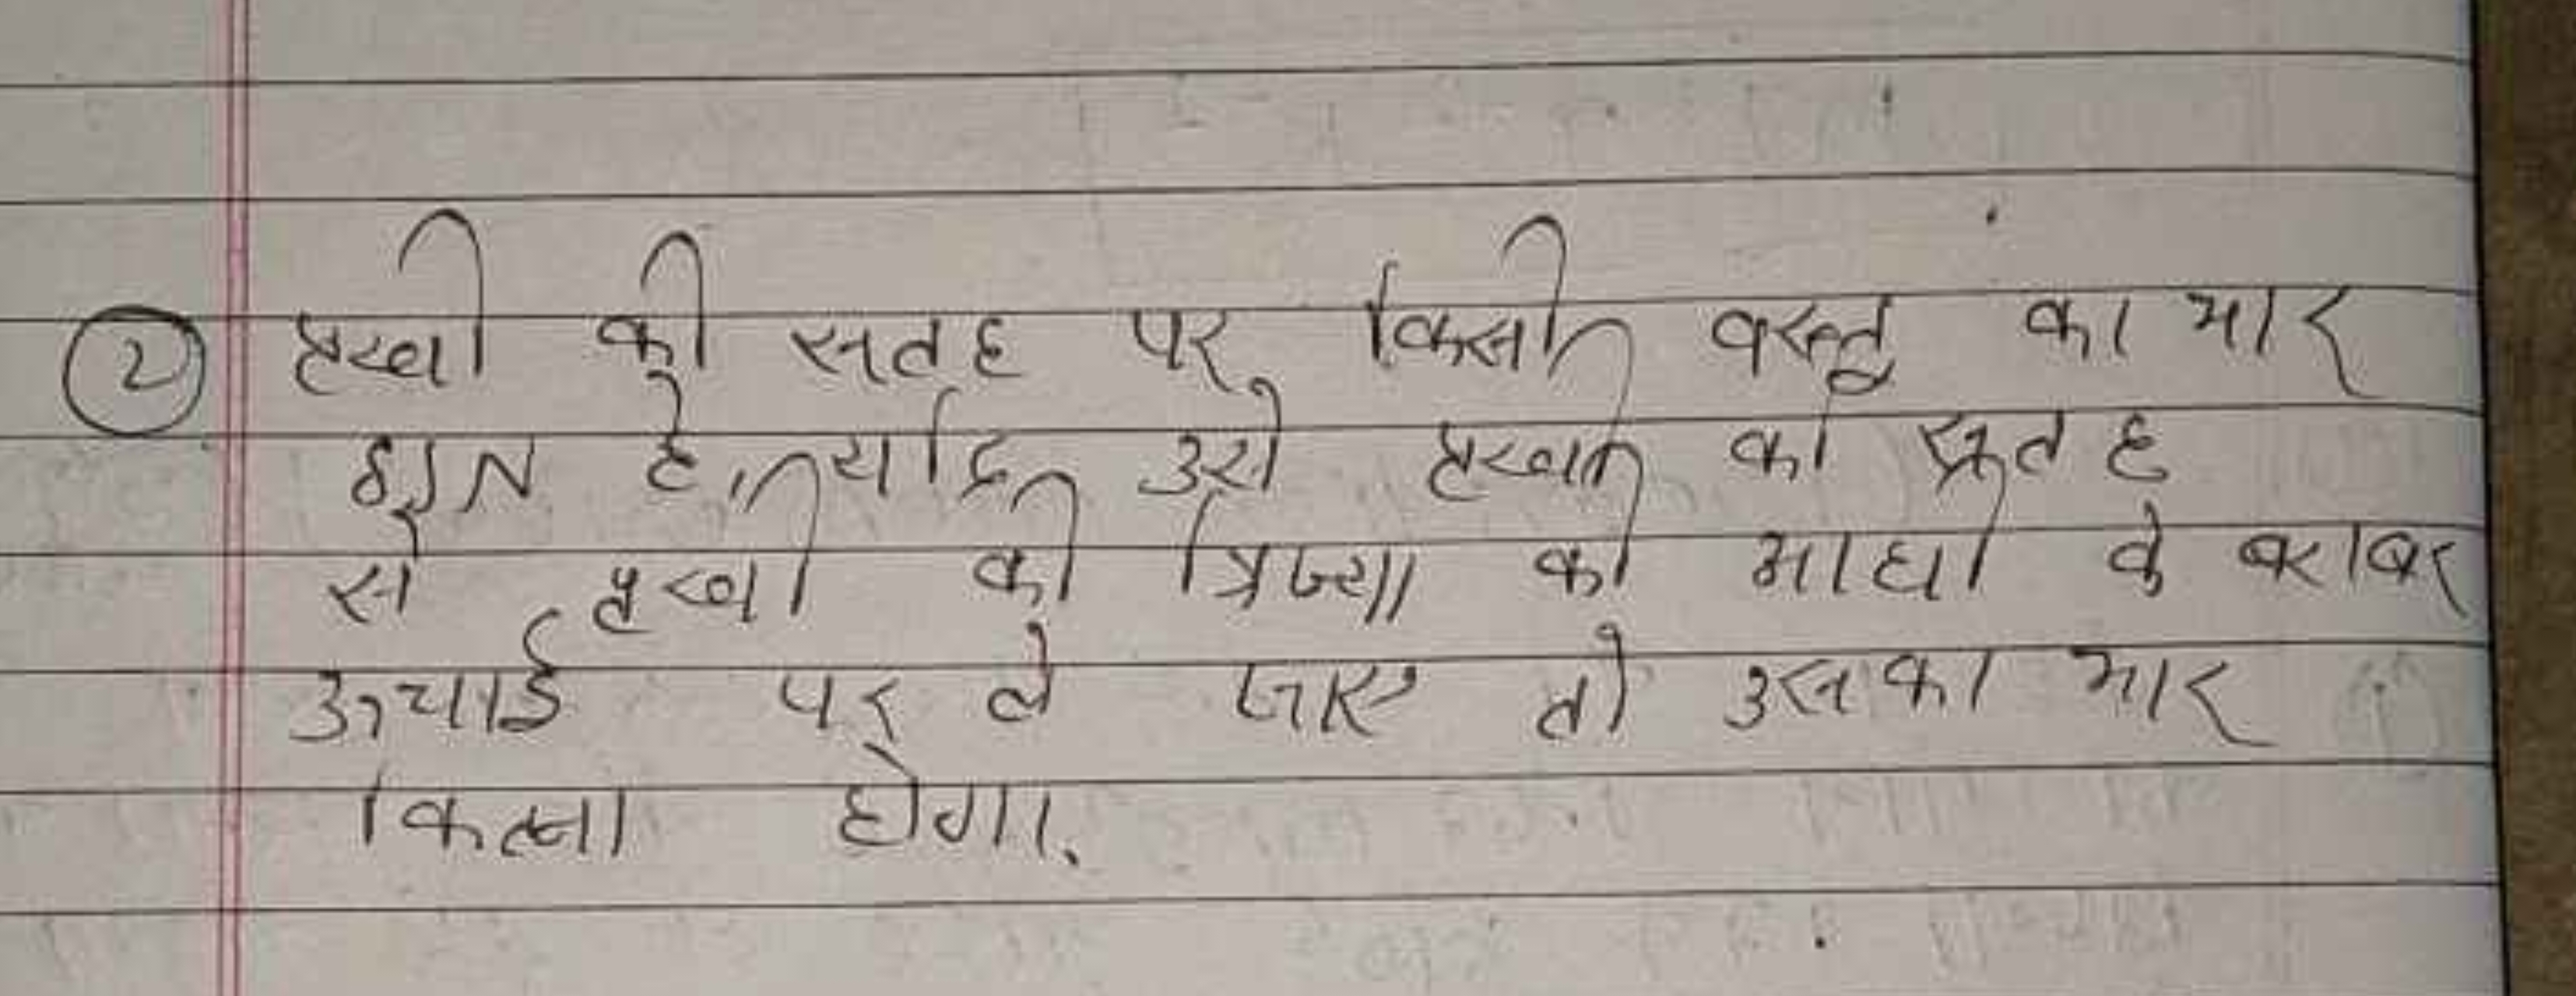 ② पृथ्वी की सतह पर किसी वस्तु का भार
है, यदि उसे पृथ्वी की सतह
से पृथ्वी की त्रिज्या की आधी के बराबर
ऊचाई पर ले जाए तो उसका भार
कितना होगा.